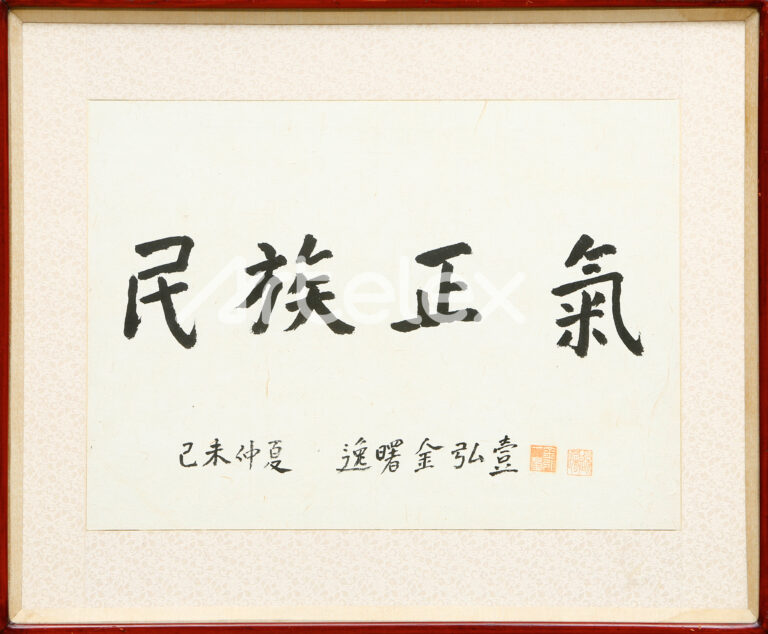 民族正氣
己未仲夏 逸曙金弘壹
Mitelex